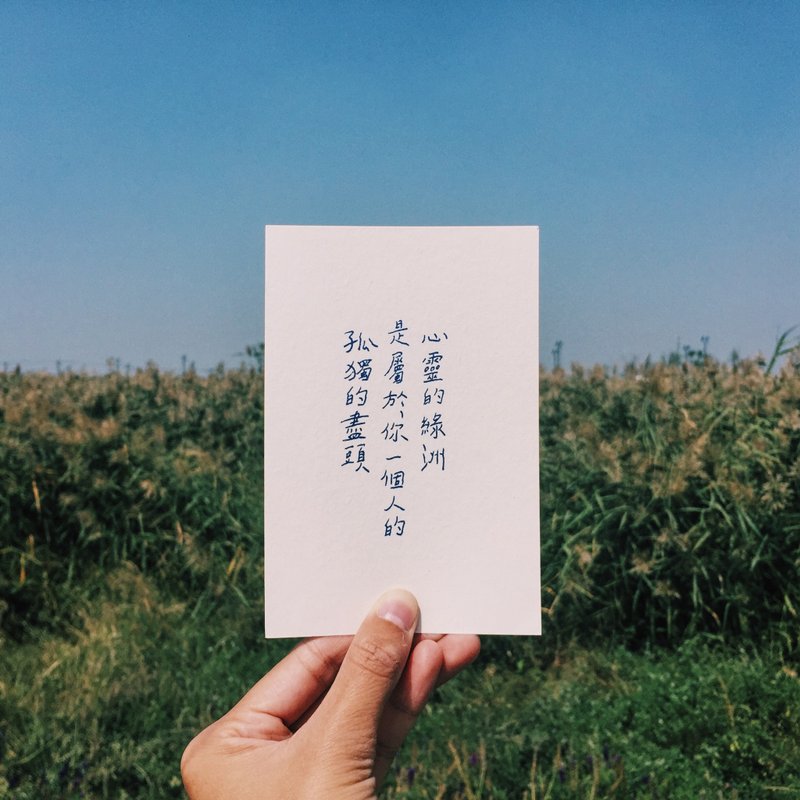 心靈的綠洲
是屬於你一個人的
孤獨的盡頭